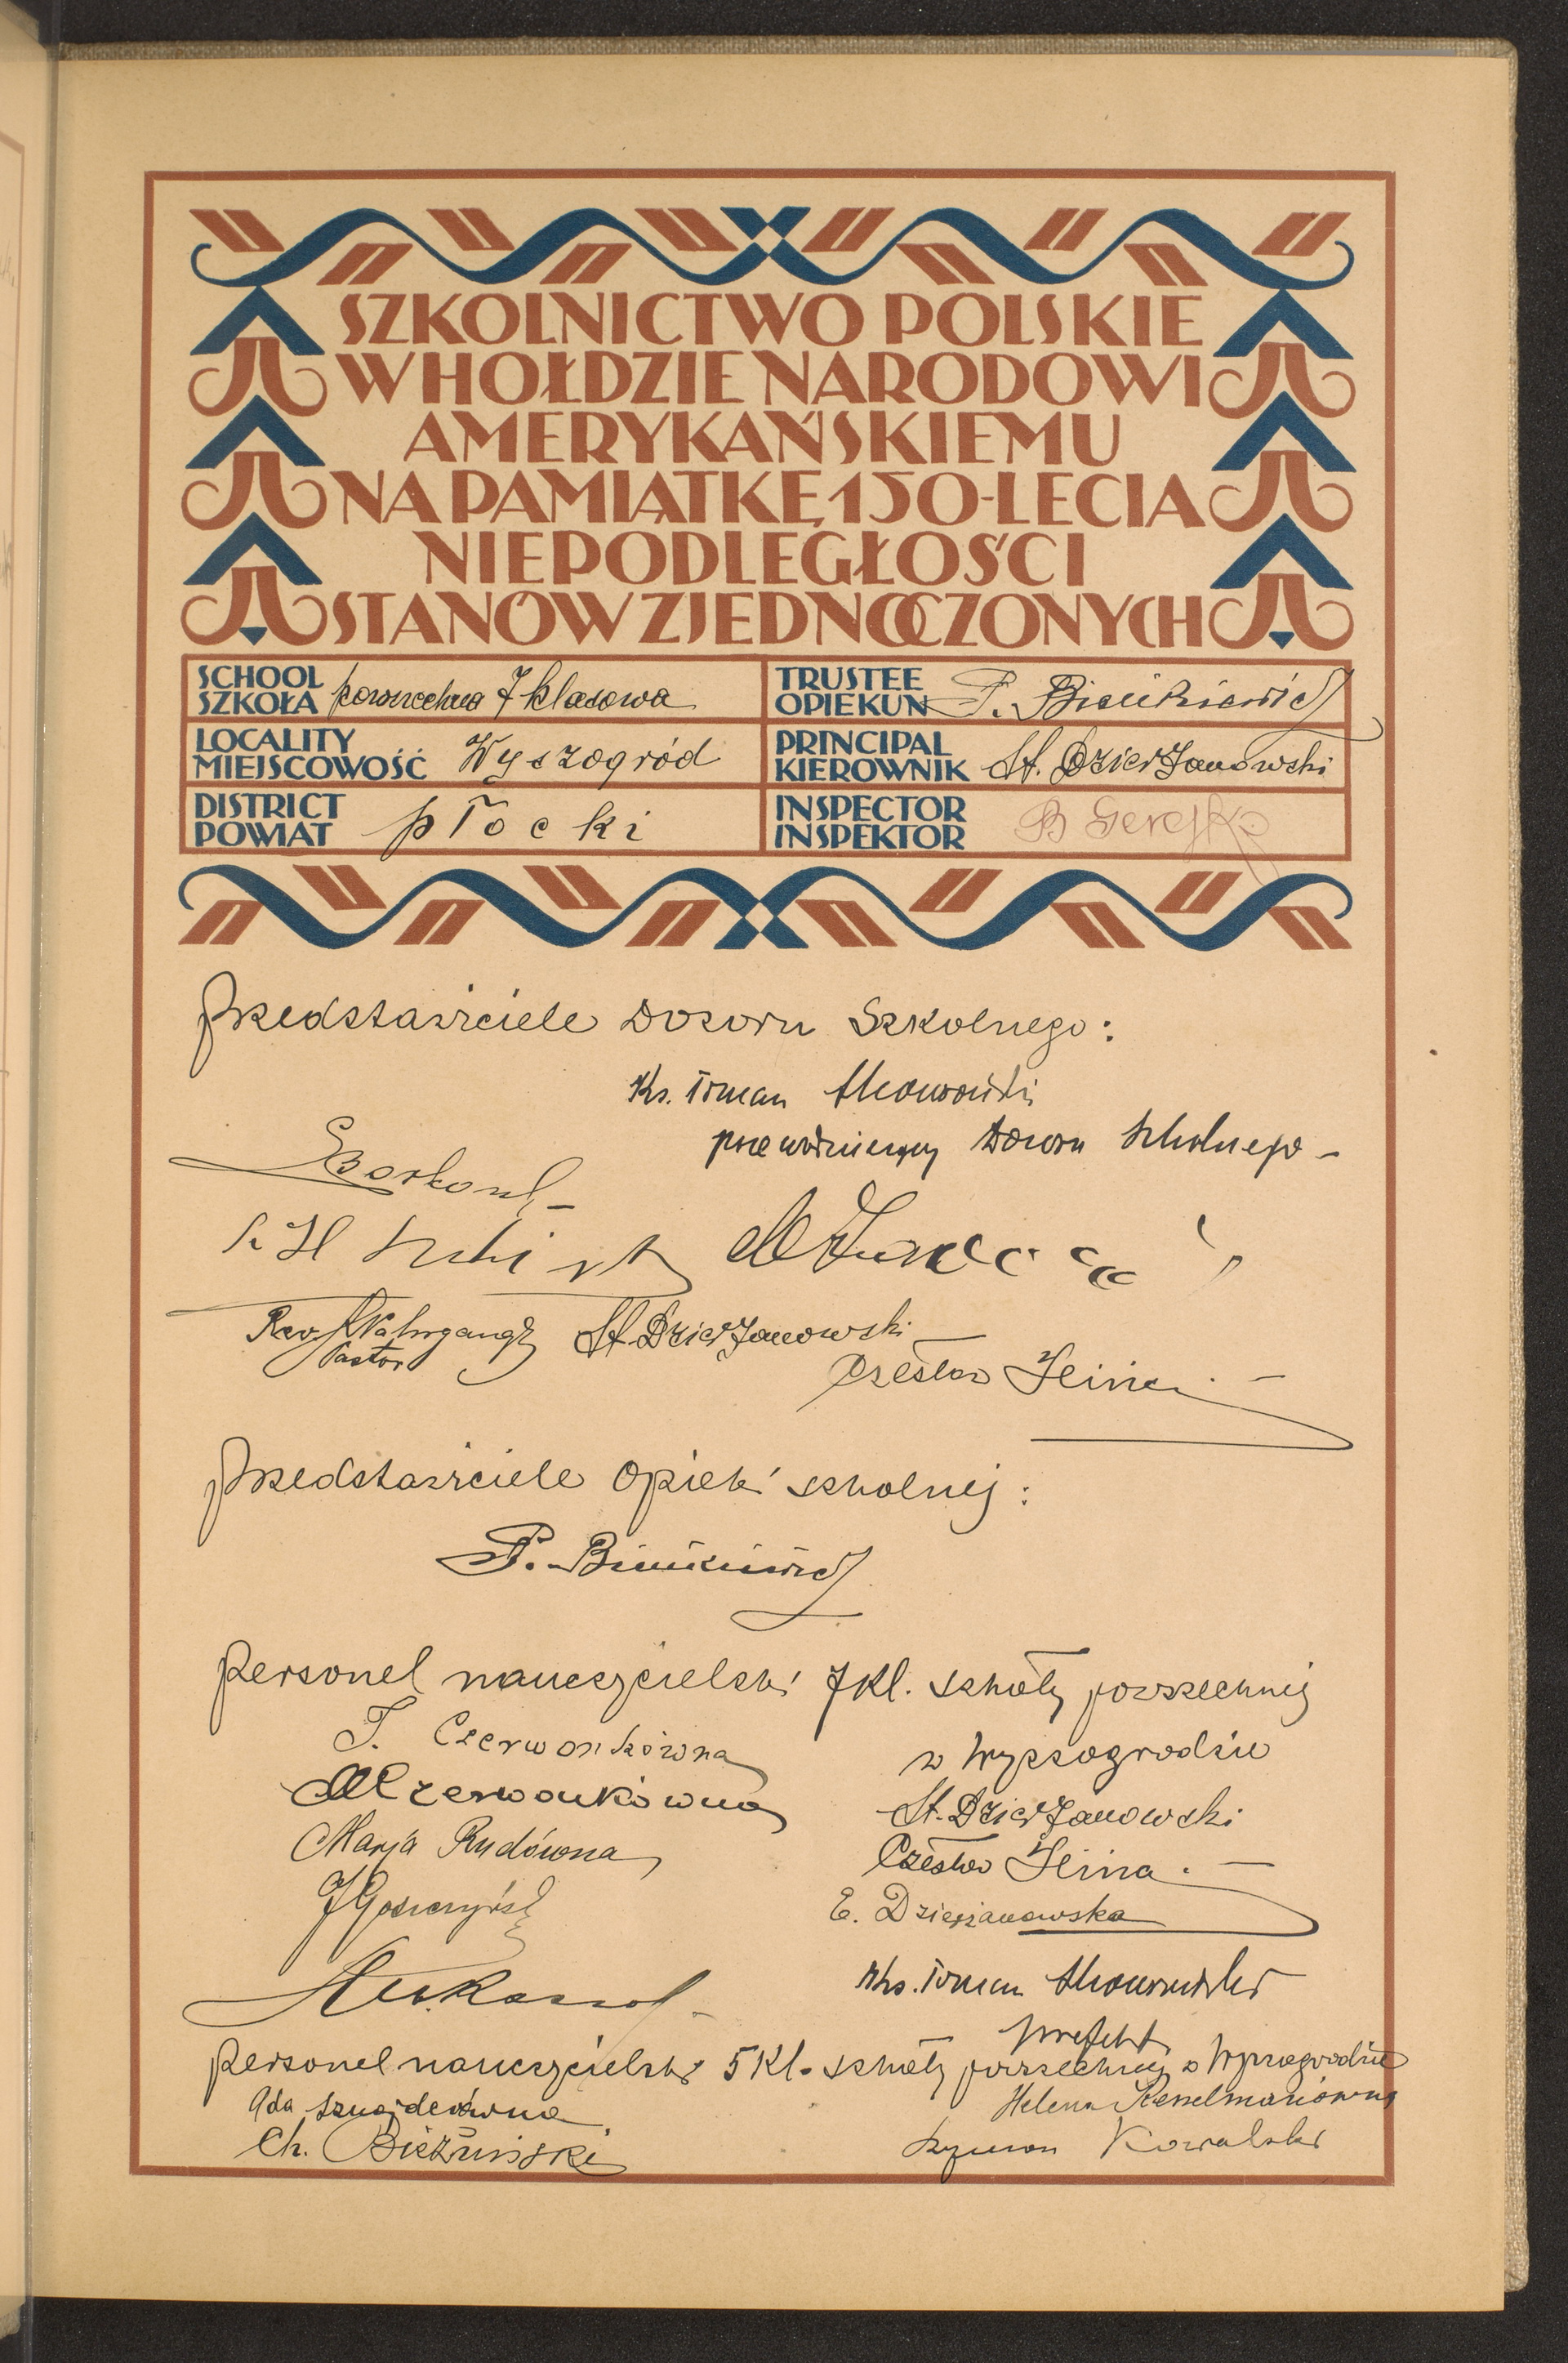 SZKOLNICTWO POLSKIE
W HOŁDZIE NARODOWI
AMERYKAŃSKIEMU
NA PAMIĄTKĘ 150-LECIA
NIEPODLEGŁOŚCI
STANÓW ZJEDNOCZONYCH
SCHOOL
SZKOŁA powszechna 7 klasowa
LOCALITY
MIEJSCOWOŚĆ Wyszogród
DISTRICT
POWIAT płocki
TRUSTEE
OPIEKUN P. Bieńkiewicz
PRINCIPAL
KIEROWNIK St. Dzierżanowski
INSPECTOR
INSPEKTOR B
Przedstawiciele Dozoru Szkolnego:
Ks. Roman
przewodniczący Dozoru Szkolnego -
Rev. Pastor
St. Dzierżanowski
Czesław Ilina
Przedstawiciele Opieki szkolnej:
P. Bieńkiewicz
Personel nauczycielski 7 kl. szkoły powszechnej
w Wyszogrodzie
T. Czerwonkówna
M Czerwonkówna
Marja Rudówna
J Gosieczyńsk
St. Dzierżanowski
Czesław Ilina
E. Dzierżanowska
Ks. Roman
prefekt
Personel nauczycielski 5 Kl. szkoły powszechnej w Wyszogrodzie
Ada Sznajderówna
Ch. Bieżuński
Helena Kesselmanówna
Szymon Kowalski